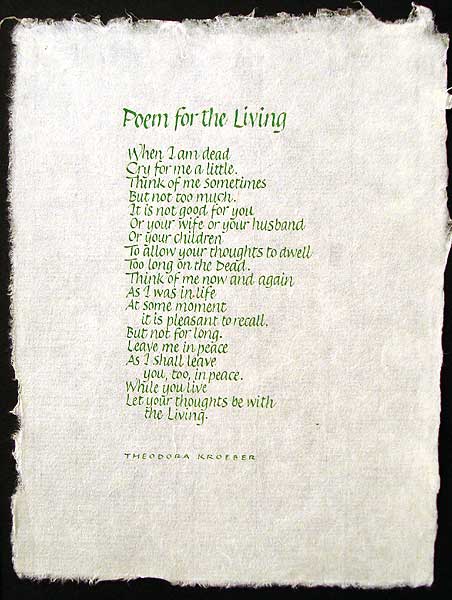 Poem for the Living
When I am dead
Cry for me a little.
Think of me sometimes
But not too much.
It is not good for you
Or your wife or your husband
Or your children
To allow your thoughts to dwell
Too long on the Dead.
Think of me now and again
As I was in life
At some moment
it is pleasant to recall.
But not for long.
Leave me in peace
As I shall leave
you, too, in peace.
While you live
Let your thoughts be with
the Living.
THEODORA KROEBER